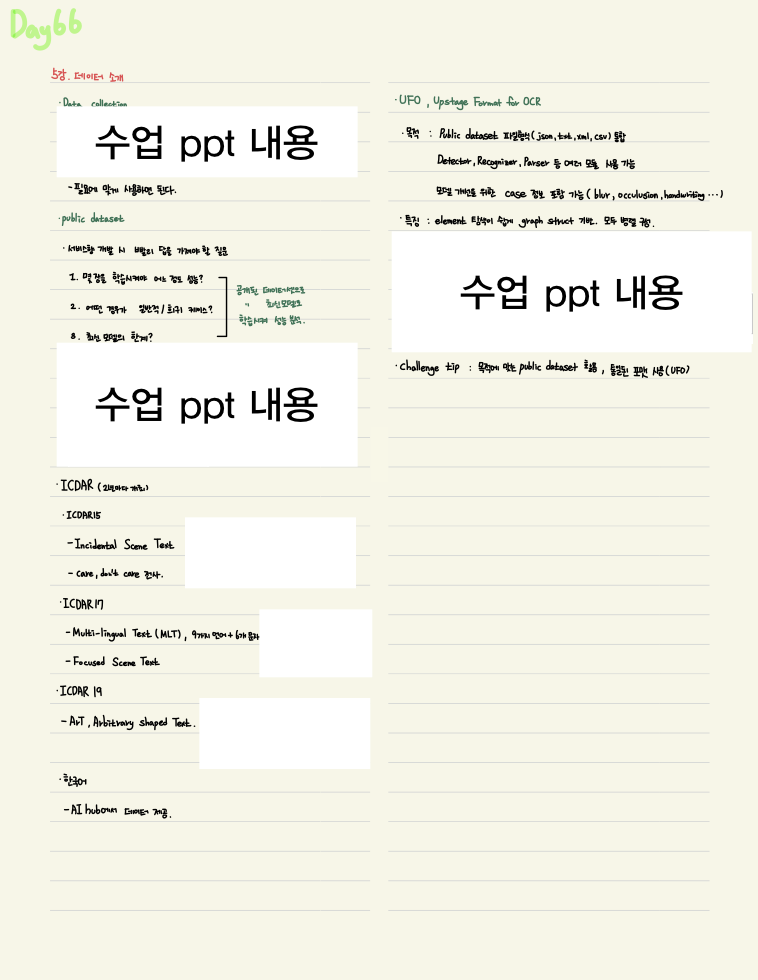 Day66
5강. 데이터 소개
· Data collection
수업 ppt 내용
- 필요에 맞게 사용하면 된다.
· public dataset
· 서비스향 개발 시 빨리 답을 가져야 할 질문
1. 몇 장을 학습시켜야 어느 정도 성능?
2. 어떤 경우가 일반적 / 희귀 케이스?
3. 최신 모델의 한계?
공개된 데이터셋으로
" 최신모델로
학습시켜 성능 분석.
수업 ppt 내용
· ICDAR (2년마다 개최)
· ICDAR15
- Incidental Scene Text
- care, don't care 전사.
· ICDAR17
- Multi-lingual Text (MLT), 9가지 언어 + 6개 문자
- Focused Scene Text
· ICDAR 19
- ArT, Arbitrary shaped Text.
· 한국어
- AI hub에서 데이터 제공.
· UFO, Upstage Format for OCR
· 목적 : Public dataset 파일형식(json, txt, xml, csv) 통합
Detector, Recognizer, Parser 등 여러 모듈 사용 가능
모델 개선을 위한 case 정보 포함 가능 (blur, occulusion, handwriting ...)
· 특징 : element 탐색이 쉽게 graph struct 기반. 모두 병렬 구성.
수업 ppt 내용
· Challenge tip : 목적에 맞는 public dataset 활용, 통일된 포맷 사용(UFO)